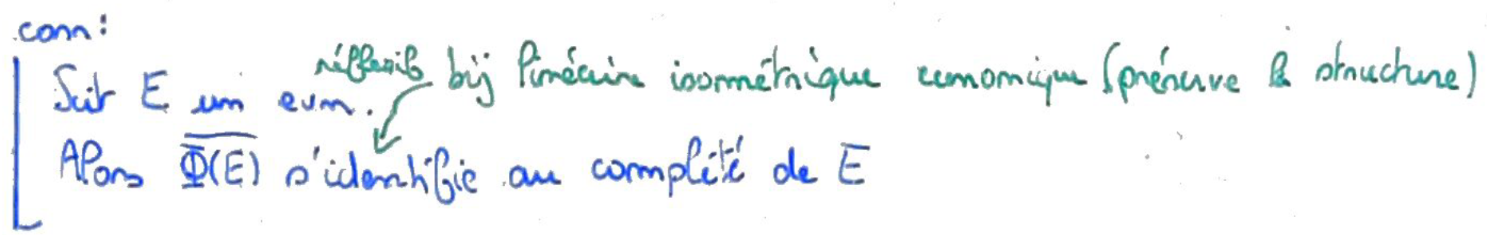 corr:
réflexif bij linéaire isométrique canonique (préserve la structure)
Soit E un evn.
Alors Φ(E) s'identifie au complété de E